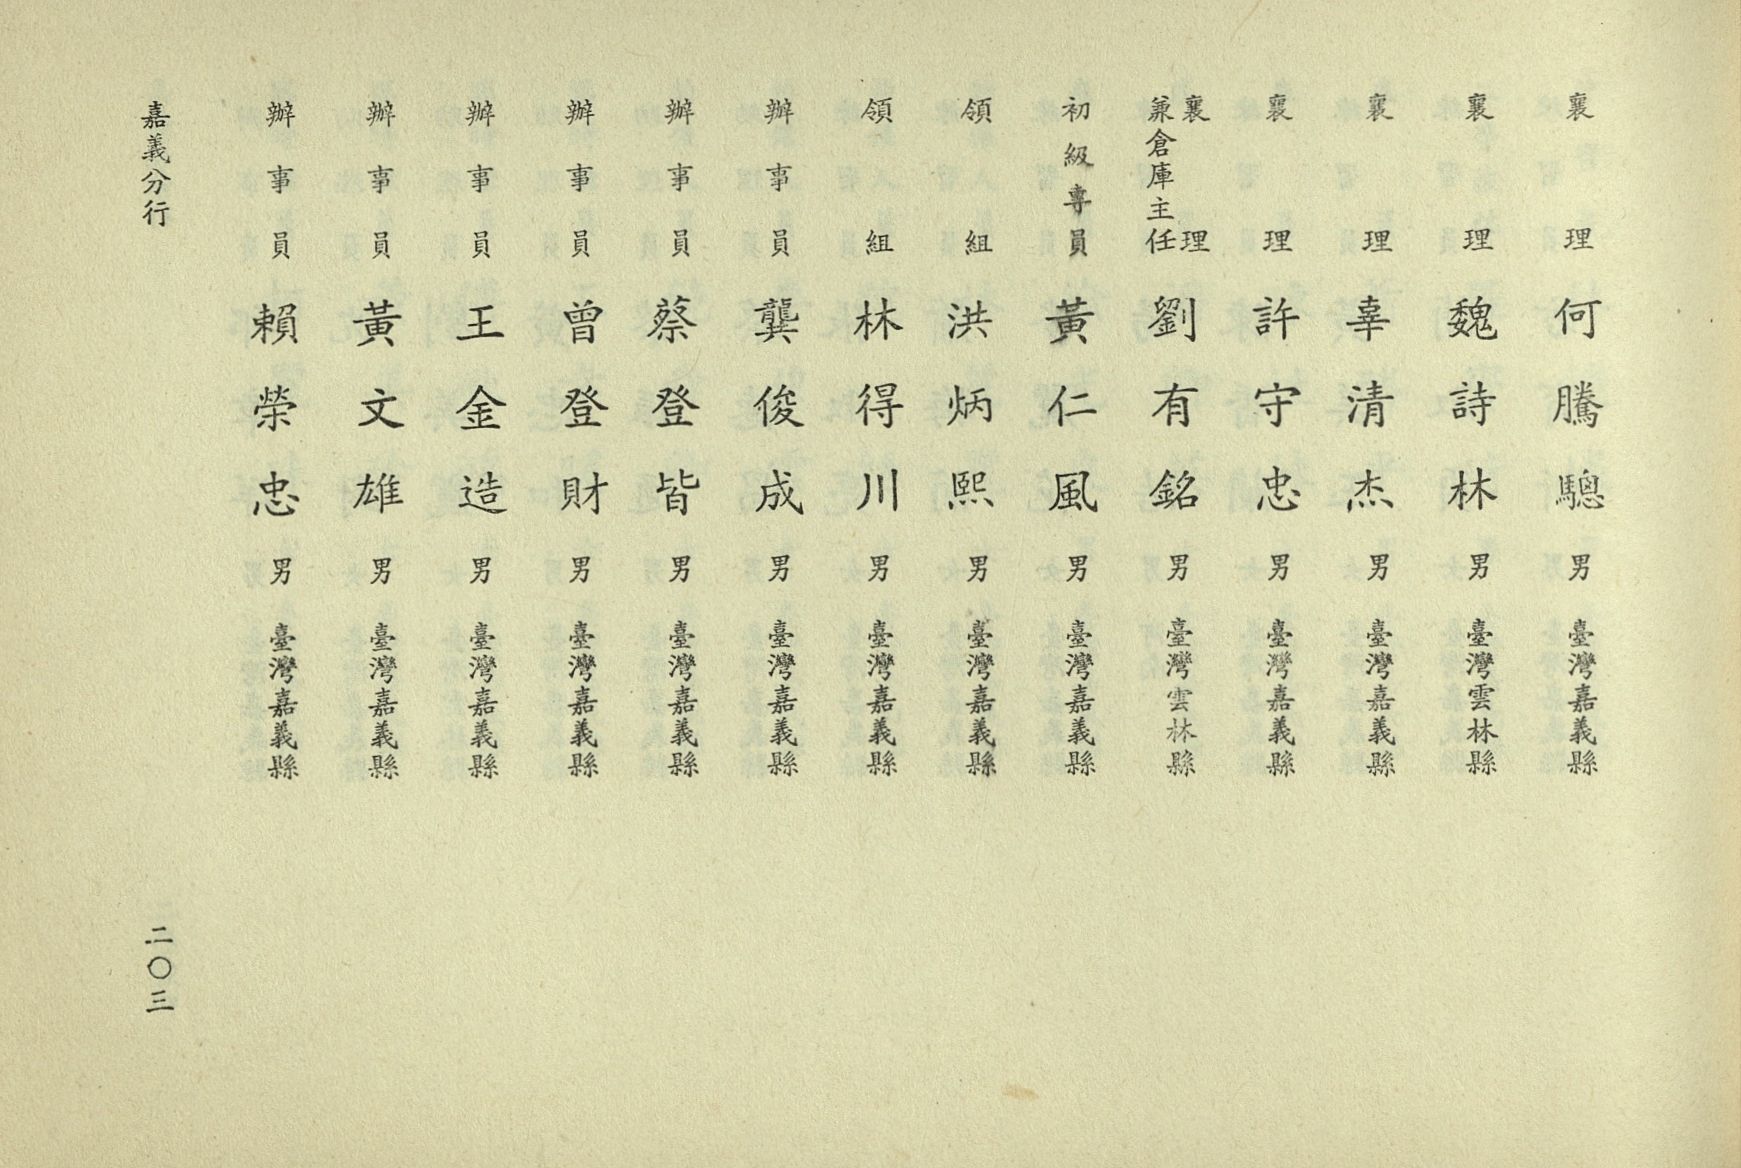 襄理 何騰驄 男 臺灣嘉義縣
襄理 魏詩林 男 臺灣雲林縣
襄理 辜清杰 男 臺灣嘉義縣
襄理 許守忠 男 臺灣嘉義縣
襄理兼倉庫主任 劉有銘 男 臺灣雲林縣
初級專員 黃仁風 男 臺灣嘉義縣
領組 洪炳熙 男 臺灣嘉義縣
領組 林得川 男 臺灣嘉義縣
辦事員 龔俊成 男 臺灣嘉義縣
辦事員 蔡登皆 男 臺灣嘉義縣
辦事員 曾登財 男 臺灣嘉義縣
辦事員 王金造 男 臺灣嘉義縣
辦事員 黃文雄 男 臺灣嘉義縣
辦事員 賴榮忠 男 臺灣嘉義縣
嘉義分行
二〇三